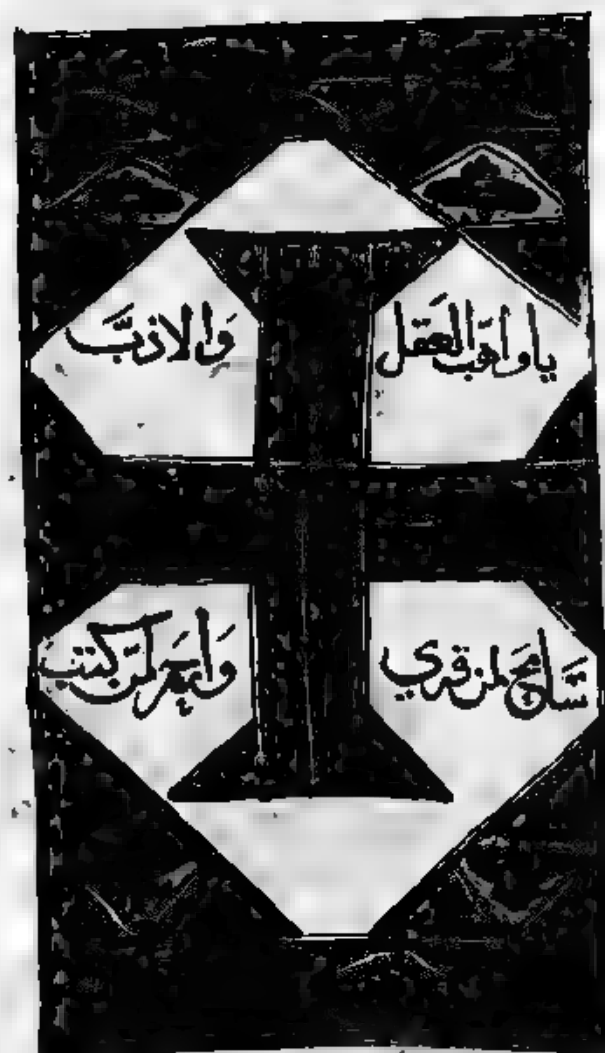 يا واهَب العَقل وَالاذبَّ
سَامِحَ لمن قري وَارحَم لمَن كتب